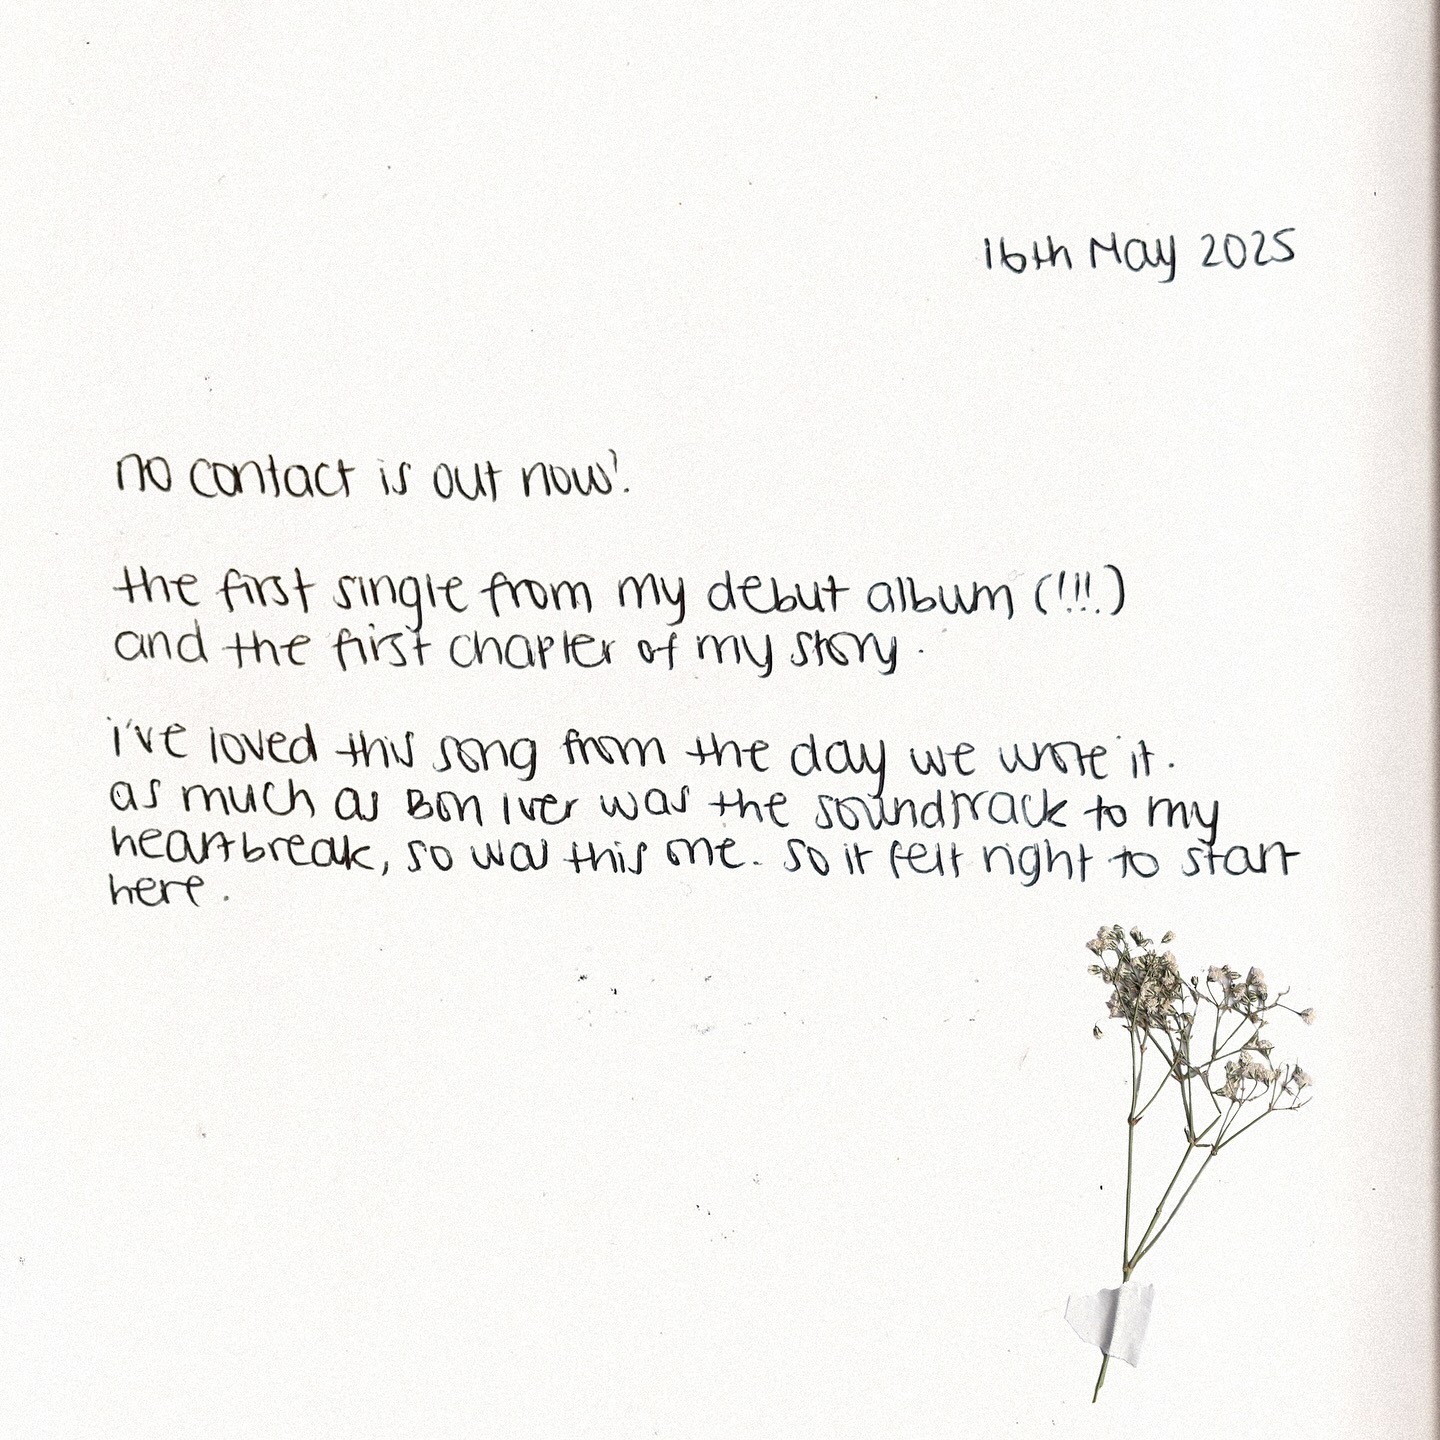 16th May 2025
no contact is out now!
the first single from my debut album (!!!)
and the first chapter of my story.
i've loved this song from the day we wrote it.
as much as Bon Iver was the soundtrack to my
heartbreak, so was this one. so it felt right to start
here.